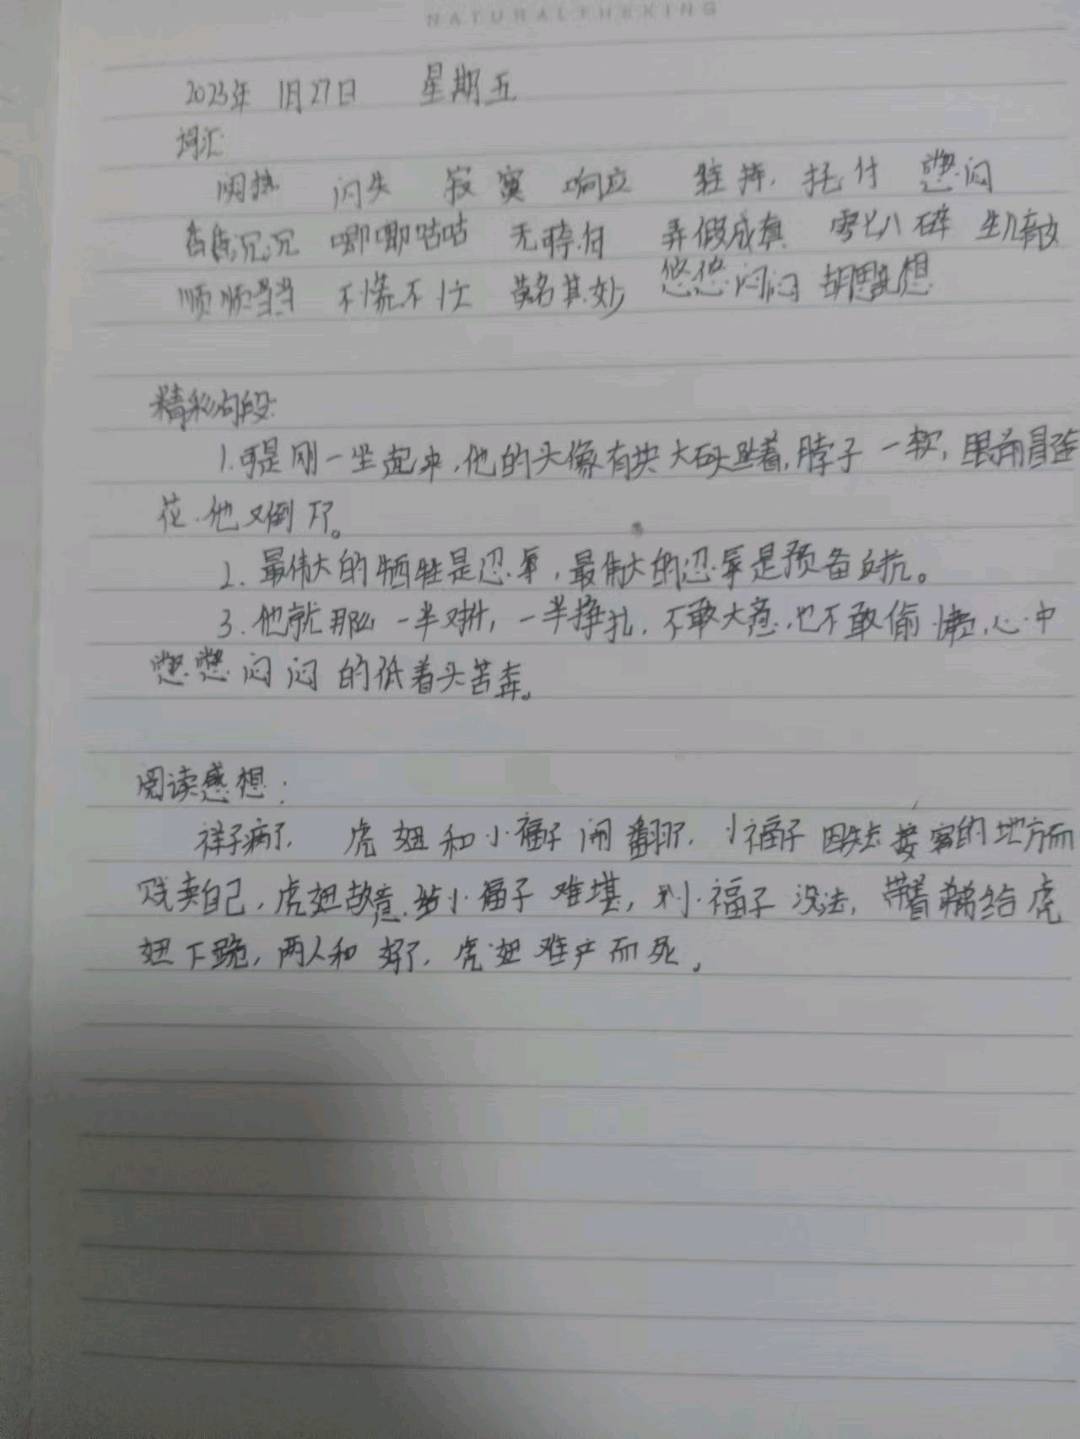 NATURALTHEKING
2023年 1月27日 星期五
词汇
闷热 闪失 寂寞 响应 托付 憋闷
昏昏沉沉 唧唧咕咕 弄假成真 零七八碎
顺顺当当 不慌不忙 莫名其妙 胡思乱想
精彩句段
1.可是刚一坐起来,他的头像有块大石头坠着,脖子一软,眼前冒金
花.他又倒下了。
2.最伟大的牺牲是忍辱,最伟大的忍辱是预备反抗。
3.他就那么一半对付,一半挣扎,不敢大意,也不敢偷懒,心中
憋憋闷闷的低着头苦奔。
阅读感想:
祥子病了, 虎妞和小福子闹翻了,小福子因失去接客的地方而
贱卖自己,虎妞故意 小福子难堪, 小福子没法, 带着 给虎
妞下跪,两人和好了,虎妞难产而死。